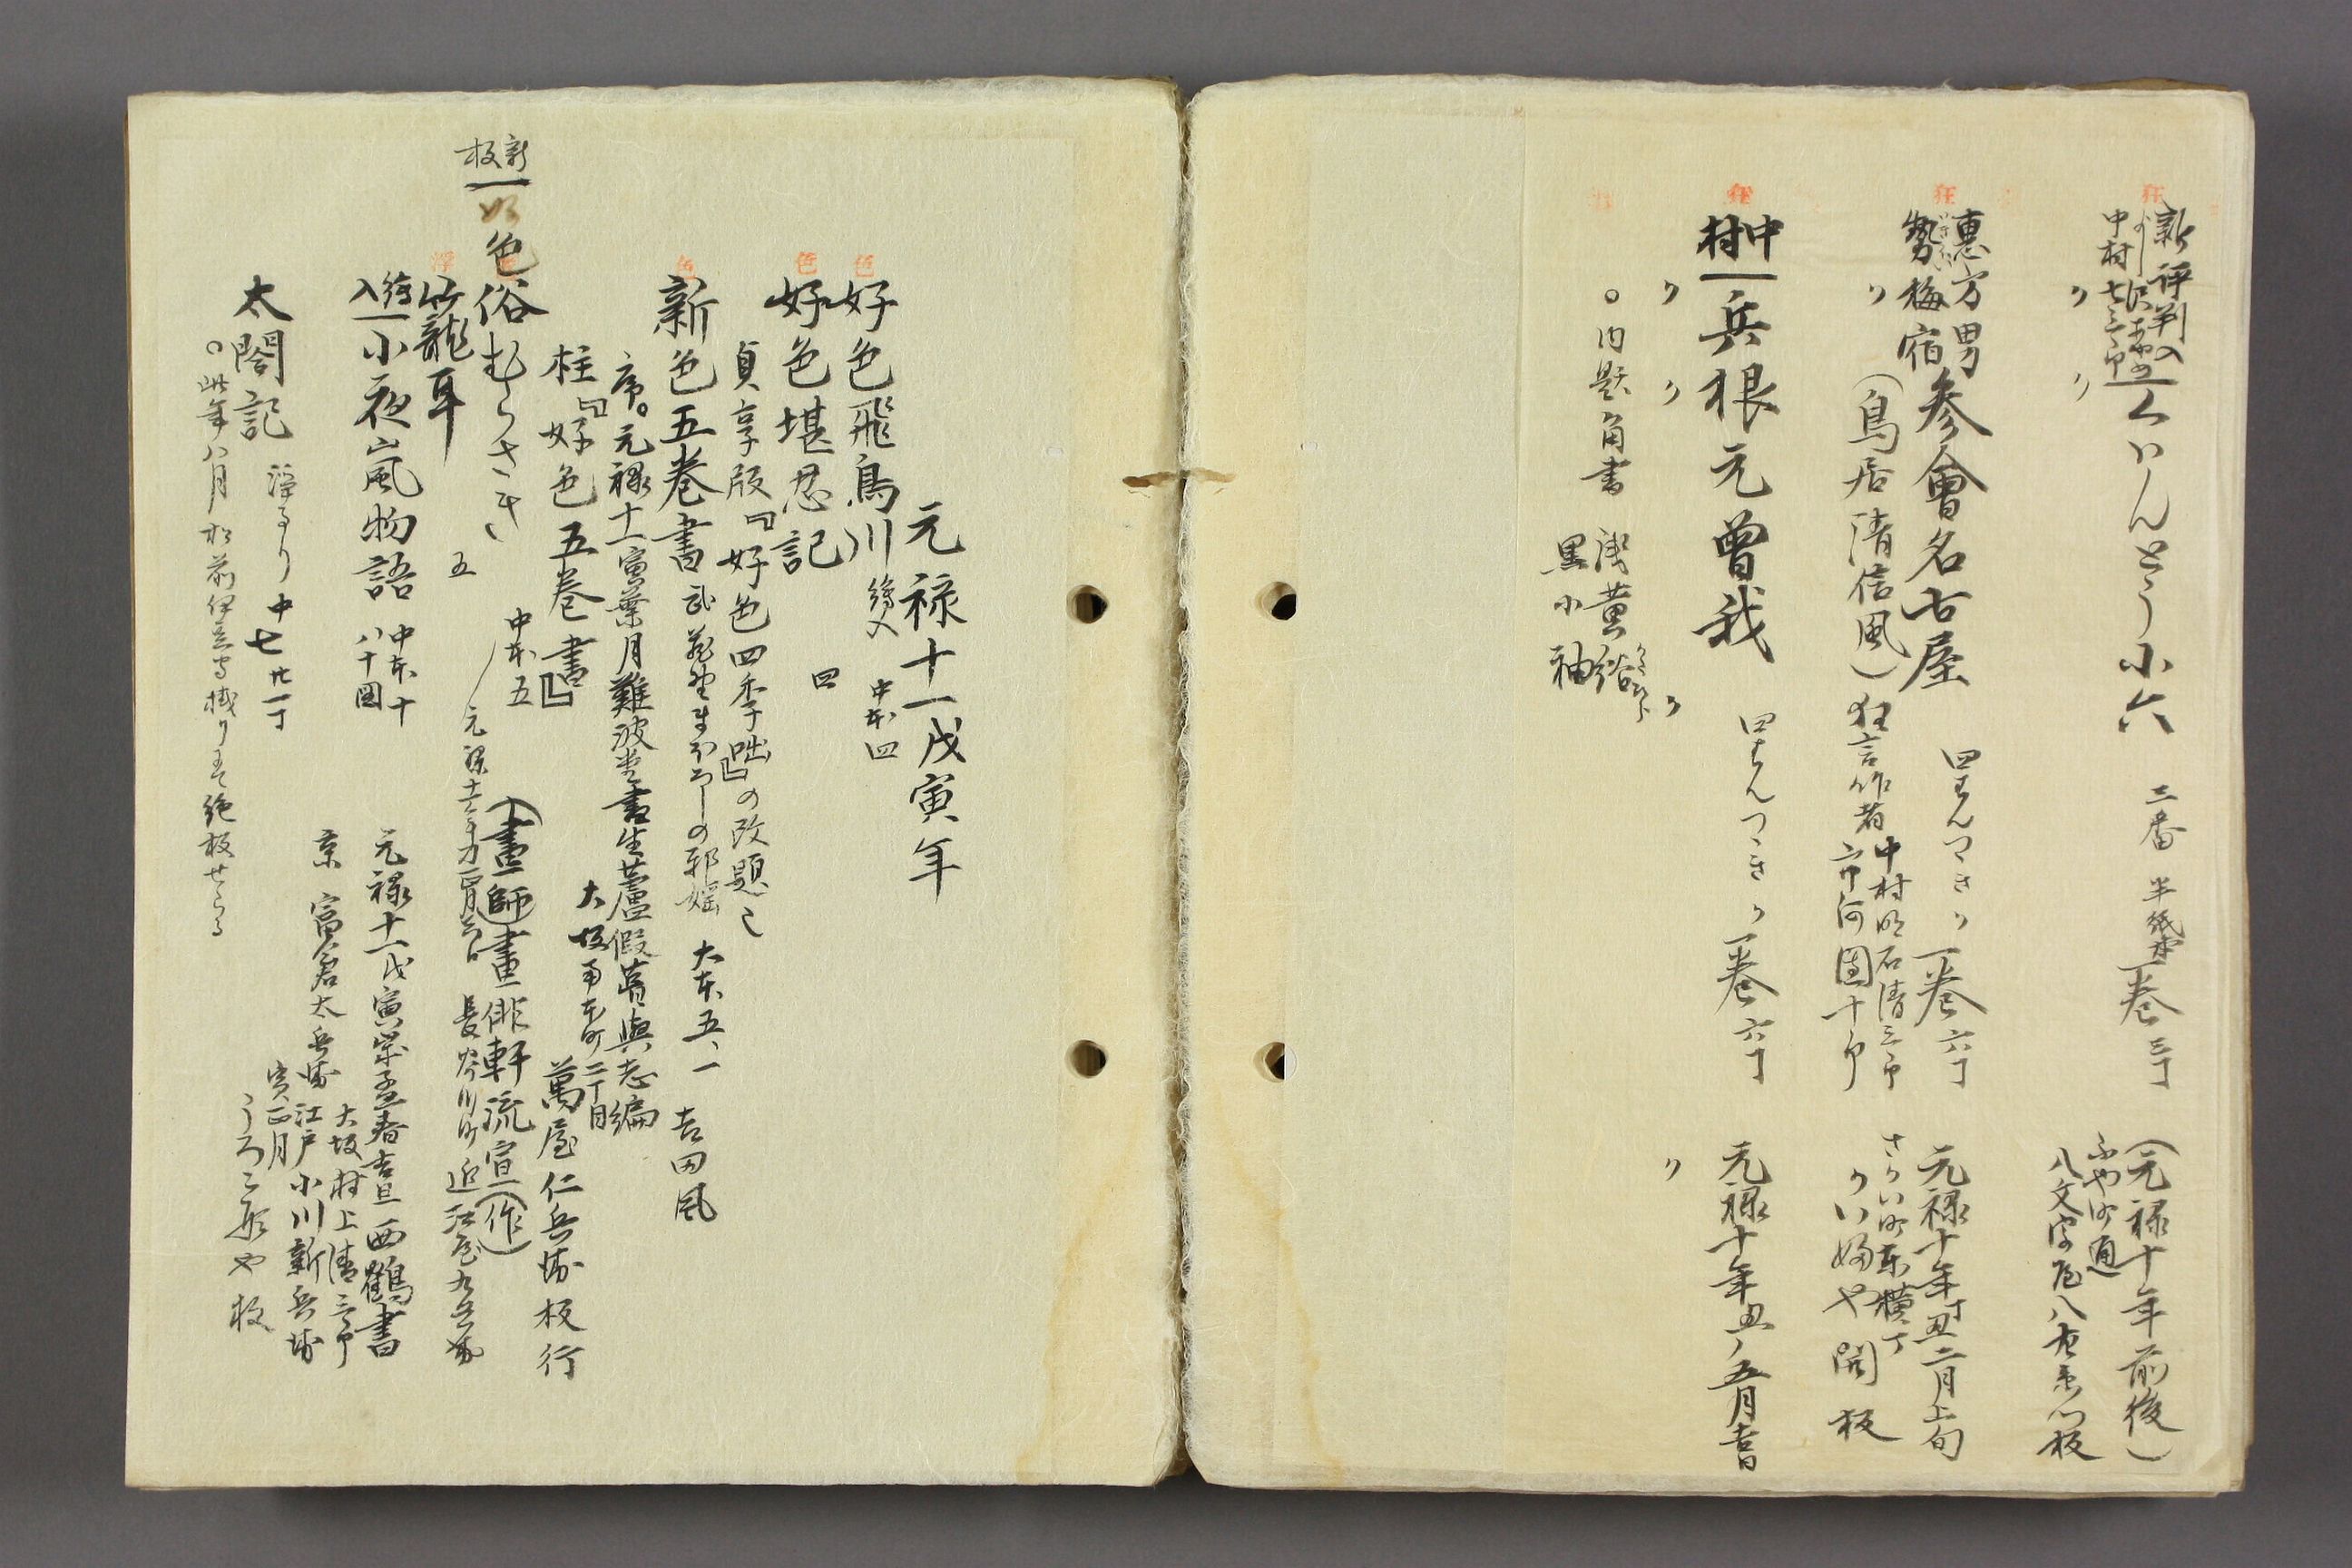 狂
新評判入
中村七三郎
くハんとう小六
二番
半紙本
一巻
(元禄十年前後)
ふや町通
八文字屋八左衛門板
狂
惠方男
勢梅宿
参會名古屋
四
一巻
元禄十年丑二月上旬
(鳥居清信風)
狂言作者
中村明石清三郎
市河團十郎
さかい町東横丁
かいふや開板
狂
中
村
兵根元曽我
四
一巻
元禄十年丑ノ五月吉日
○内題角書
浅黄
黒小袖
元禄十一戊寅年
色
好色飛鳥川
繪入
中本四
色
好色堪忍記
四
貞享版『好色四季咄』の改題
色
新色五巻書
大本五、一
吉田風
序。元禄十一寅葉月難波書生蘆假葺與志編
柱『好色五巻書』
大坂
二丁目
萬屋仁兵衛板行
新
板
好色俗むらさき
五
中本五
(畫師)畫俳軒流宣(作)
長谷川町近江屋九兵衛
浮
籠耳
繪
入
小夜嵐物語
中本十
八十圖
元禄十一戊寅
春吉旦西鶴書
京
富倉太兵衛
大坂村上清三郎
江戸小川新兵衛
太閤記
浮るり
中
七
廿一丁
寅正月
うろこ形や板
○此年八月松前伊豆守
絶板